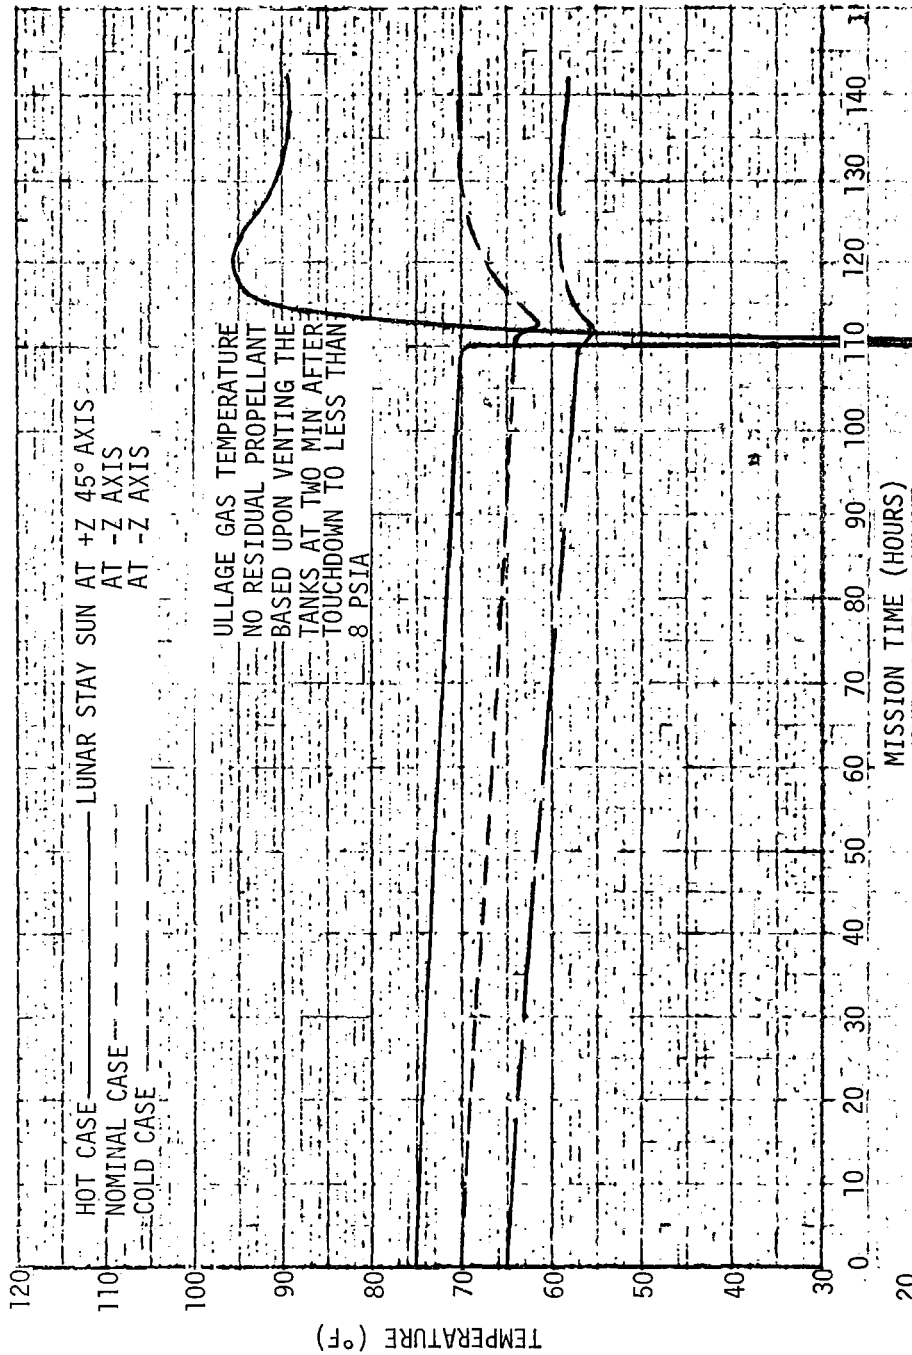 HOT CASE LUNAR STAY SUN AT +Z 45° AXIS
NOMINAL CASE AT -Z AXIS
COLD CASE AT -Z AXIS
ULLAGE GAS TEMPERATURE
NO RESIDUAL PROPELLANT
BASED UPON VENTING THE
TANKS AT TWO MIN AFTER
TOUCHDOWN TO LESS THAN
8 PSIA
TEMPERATURE (°F)
120
110
100
90
80
70
60
50
40
30
20
0 10 20 30 40 50 60 70 80 90 100 110 120 130 140
MISSION TIME (HOURS)